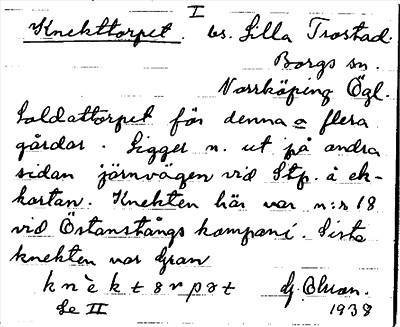 I
Knekttorpet. bs. Lilla Trostad.
Borgs sn.
Norrköping Ögl.
Soldattorpet för denna o flera
gårdar. Ligger n. ut på andra
sidan järnvägen vid Stp. å ek-
kartan. Knekten här var n:r 18
vid Östanstångs kompani. Sista
knekten var Gran
knèktørpət G. Olson.
Se II 1938